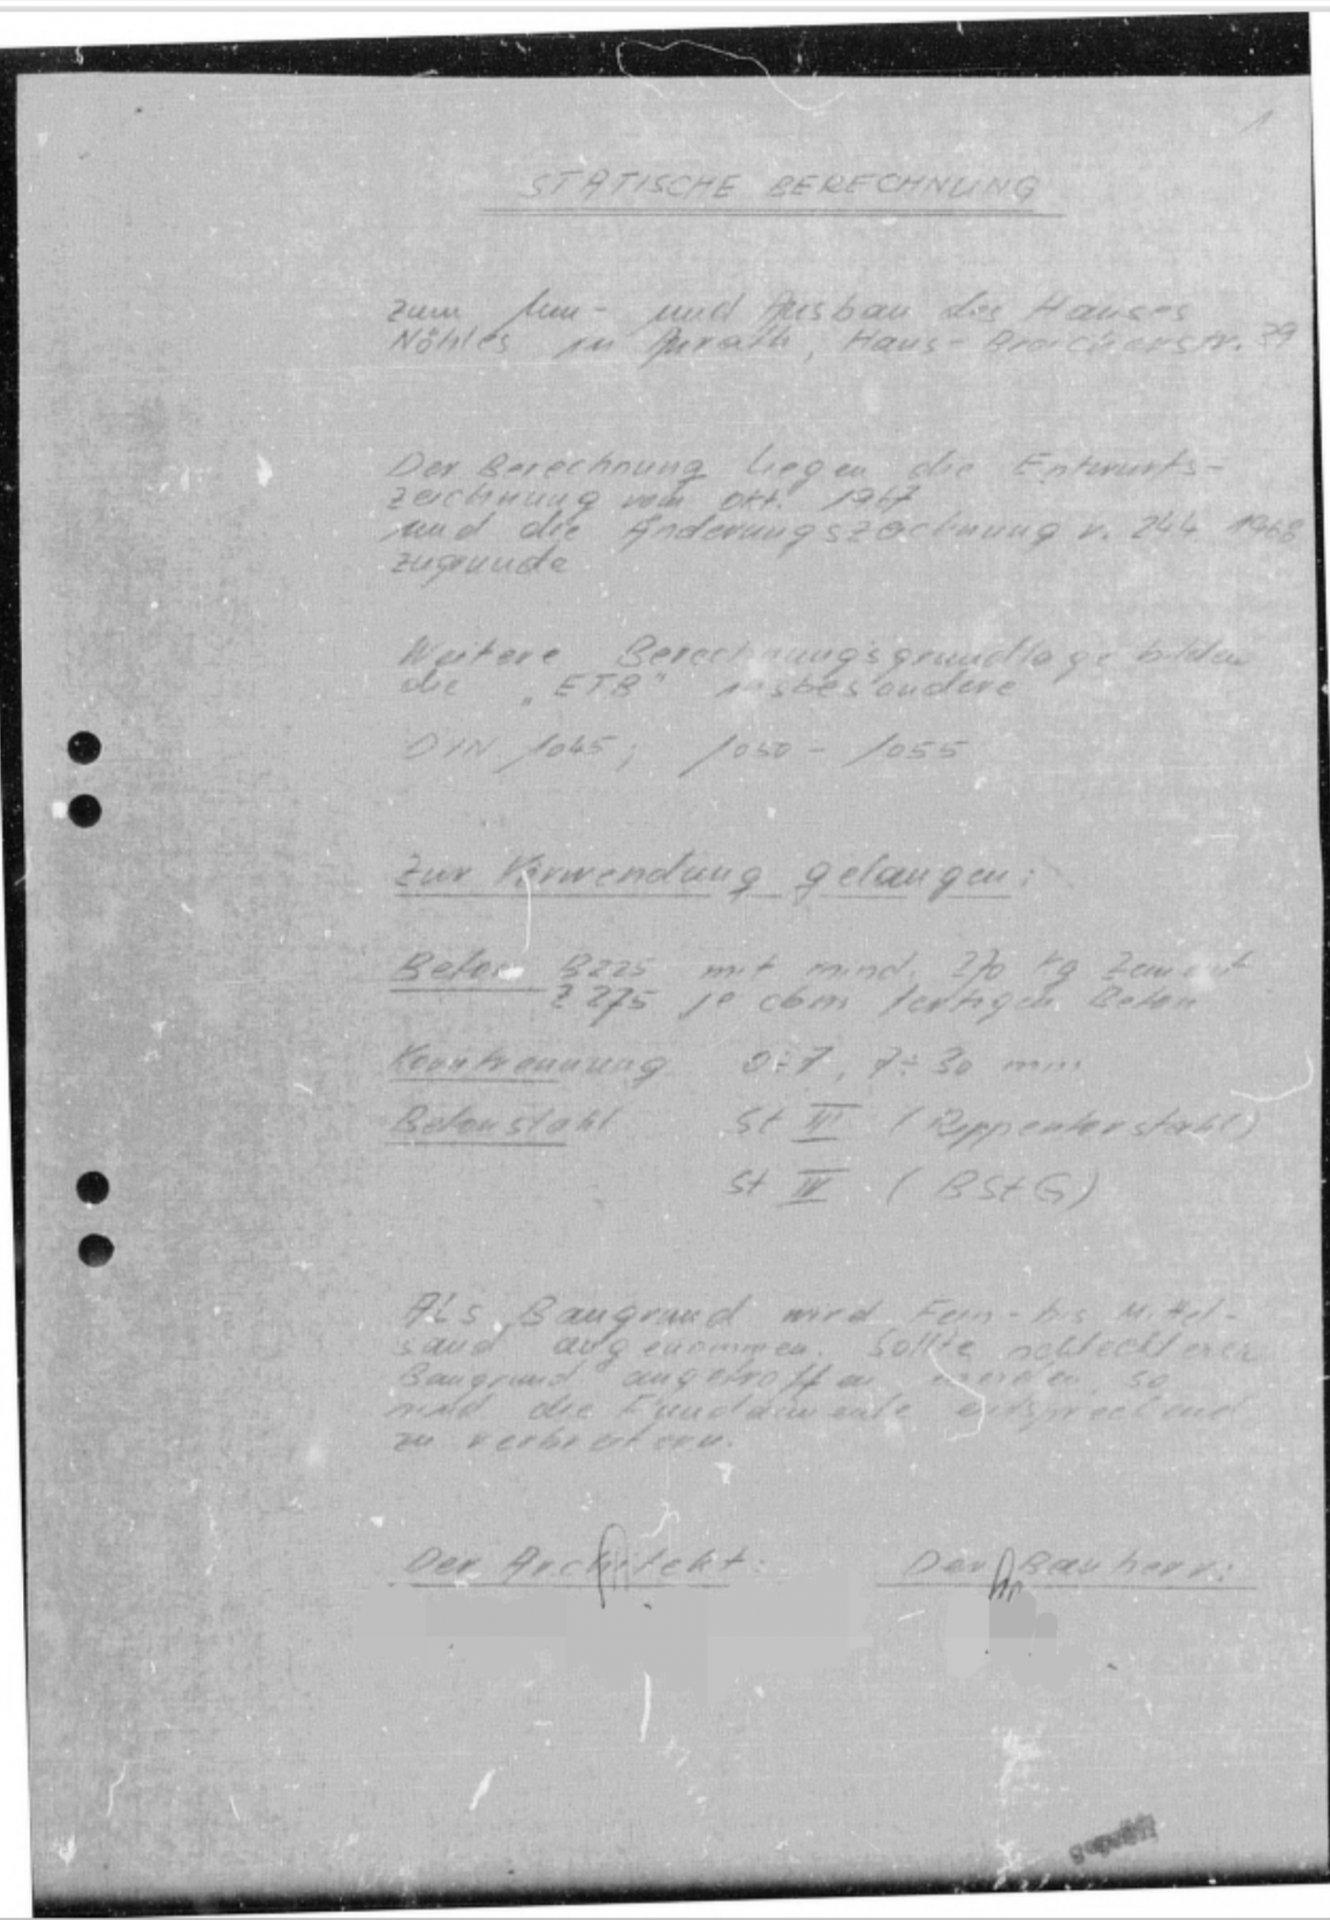 1
STATISCHE BERECHNUNG
zum Um- und Ausbau des Hauses
Nöhles in Anrath, Haus-Broicherstr. 39
Der Berechnung liegen die Entwurfs-
zeichnung vom Okt. 1967
und die Änderungszeichnung v. 24.4. 1968
zugrunde
Weitere Berechnungsgrundlage bilden
die „ETB" insbesondere
DIN 1045; 1050 - 1055
Zur Verwendung gelangen:
Beton B225 mit mind. 270 kg Zement
Z 275 je cbm fertigen Beton
Korntrennung 0÷7, 7÷30 mm
Betonstahl St III (Rippentorstahl)
St IV (BStG)
Als Baugrund wird Fein- bis Mittel-
sand angenommen. Sollte schlechterer
Baugrund angetroffen werden, so
sind die Fundamente entsprechend
zu verbreitern.
Der Architekt: Der Bauherr:
geprüft